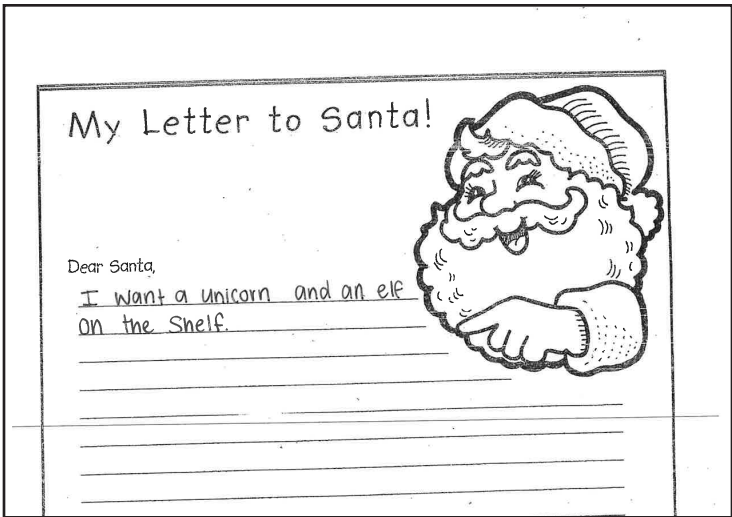 My Letter to Santa!
Dear Santa,
I want a unicorn and an elf
on the Shelf.